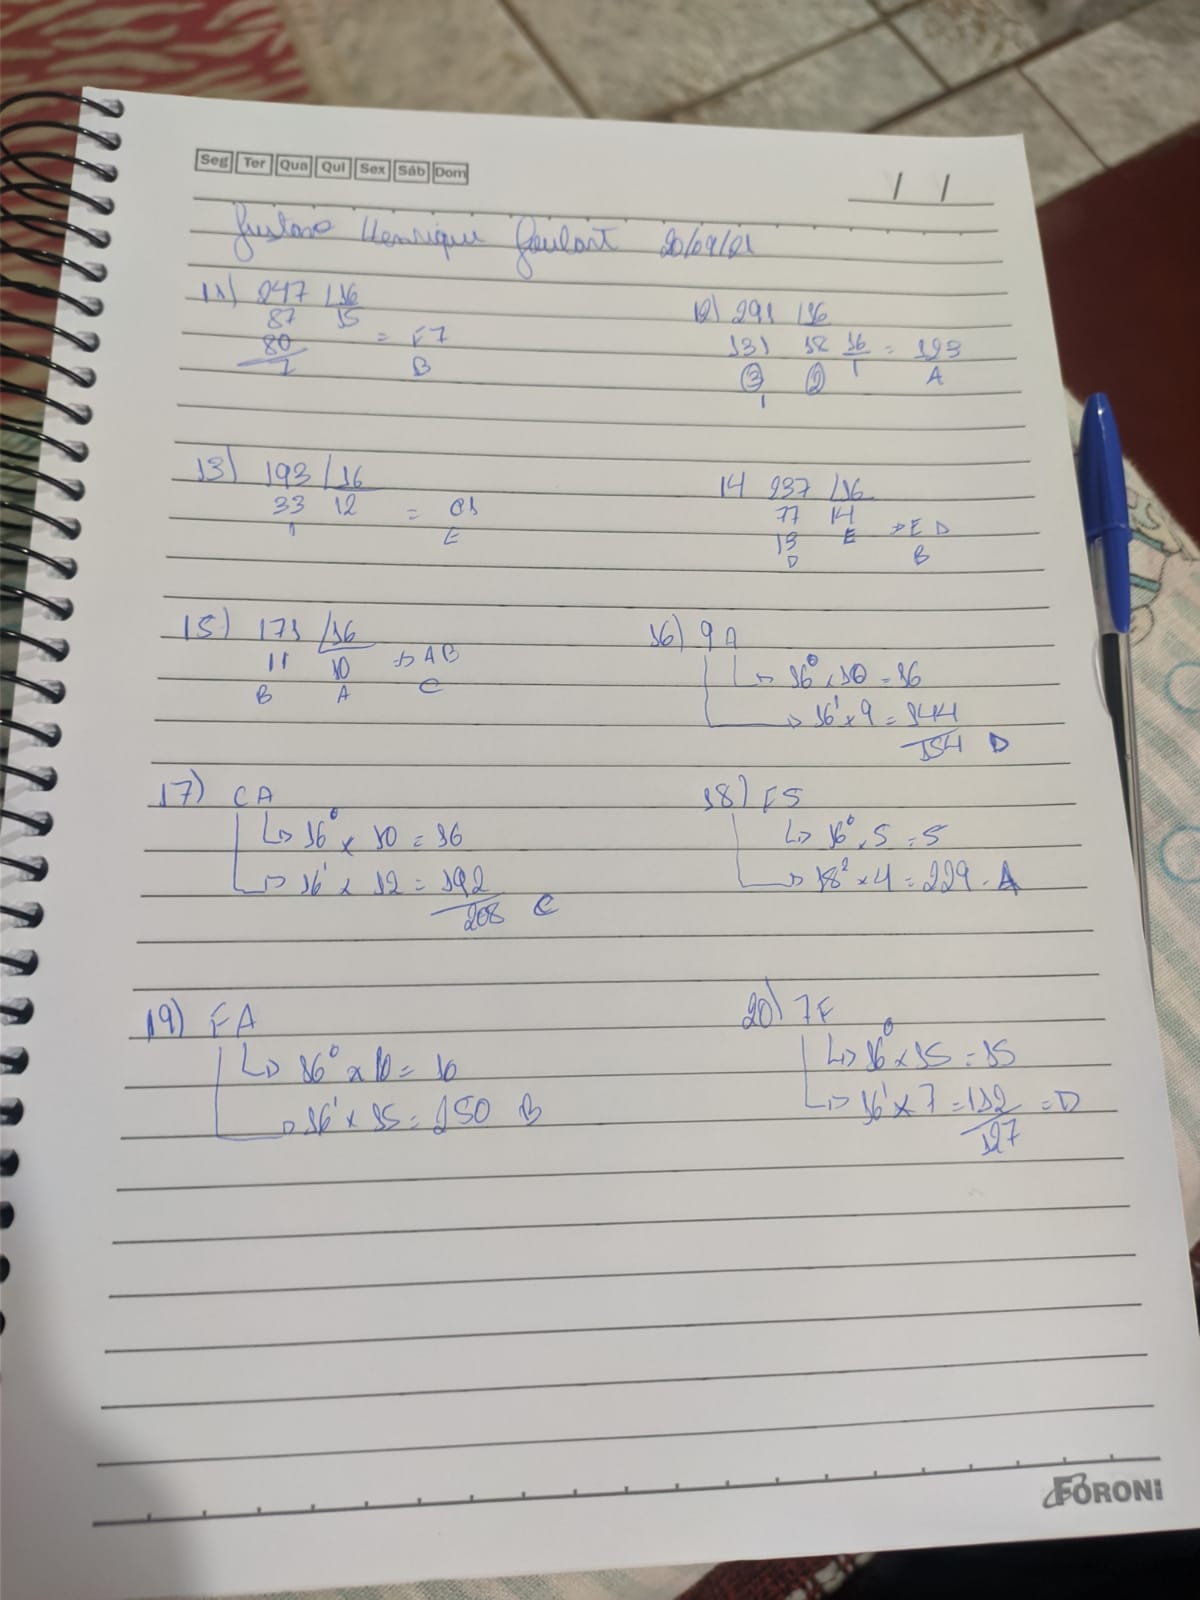 Seg Ter Qua Qui Sex Sáb Dom
/ /
Gustavo Henrique Goulart 20/09/21
11) 247 /16
87 15
80 = F7
7 B
12) 291 /16
131 18 16 = 123
3 2 1 A
1
13) 193 /16
33 12 = C1
1 E
14 237 /16
77 14
13 E => E D
D B
15) 171 /16
11 10 => A B
B A C
16) 9 A
↳ 16⁰ x 10 = 16
↳ 16¹ x 9 = 144
154 D
17) C A
↳ 16⁰ x 10 = 16
↳ 16¹ x 12 = 192
208 C
18) E5
↳ 16⁰ x 5 = 5
↳ 18² x 4 = 229 - A
19) FA
↳ 16⁰ x 10 = 10
↳ 16¹ x 15 = 250 B
20) 7F
↳ 16⁰ x 15 = 15
↳ 16¹ x 7 = 112 = D
127
FORONI